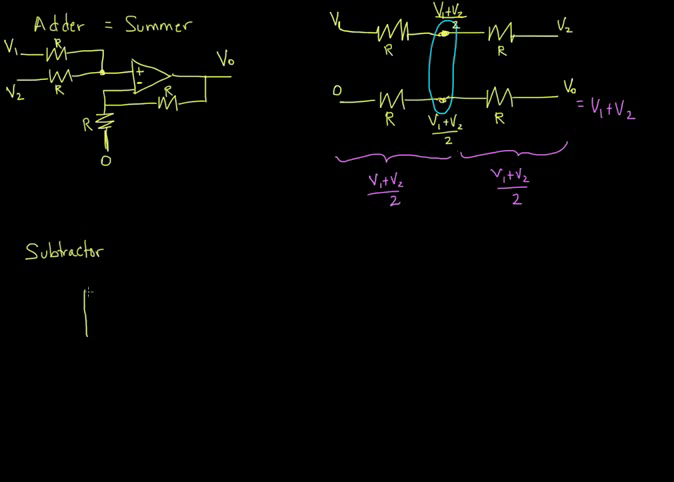 Adder = Summer
V₁ R
V₂ R
+
-
R
V₀
R
0
V₁ R (V₁+V₂)/2 R V₂
0 R (V₁+V₂)/2 R V₀ = V₁+V₂
(V₁+V₂)/2 (V₁+V₂)/2
Subtractor